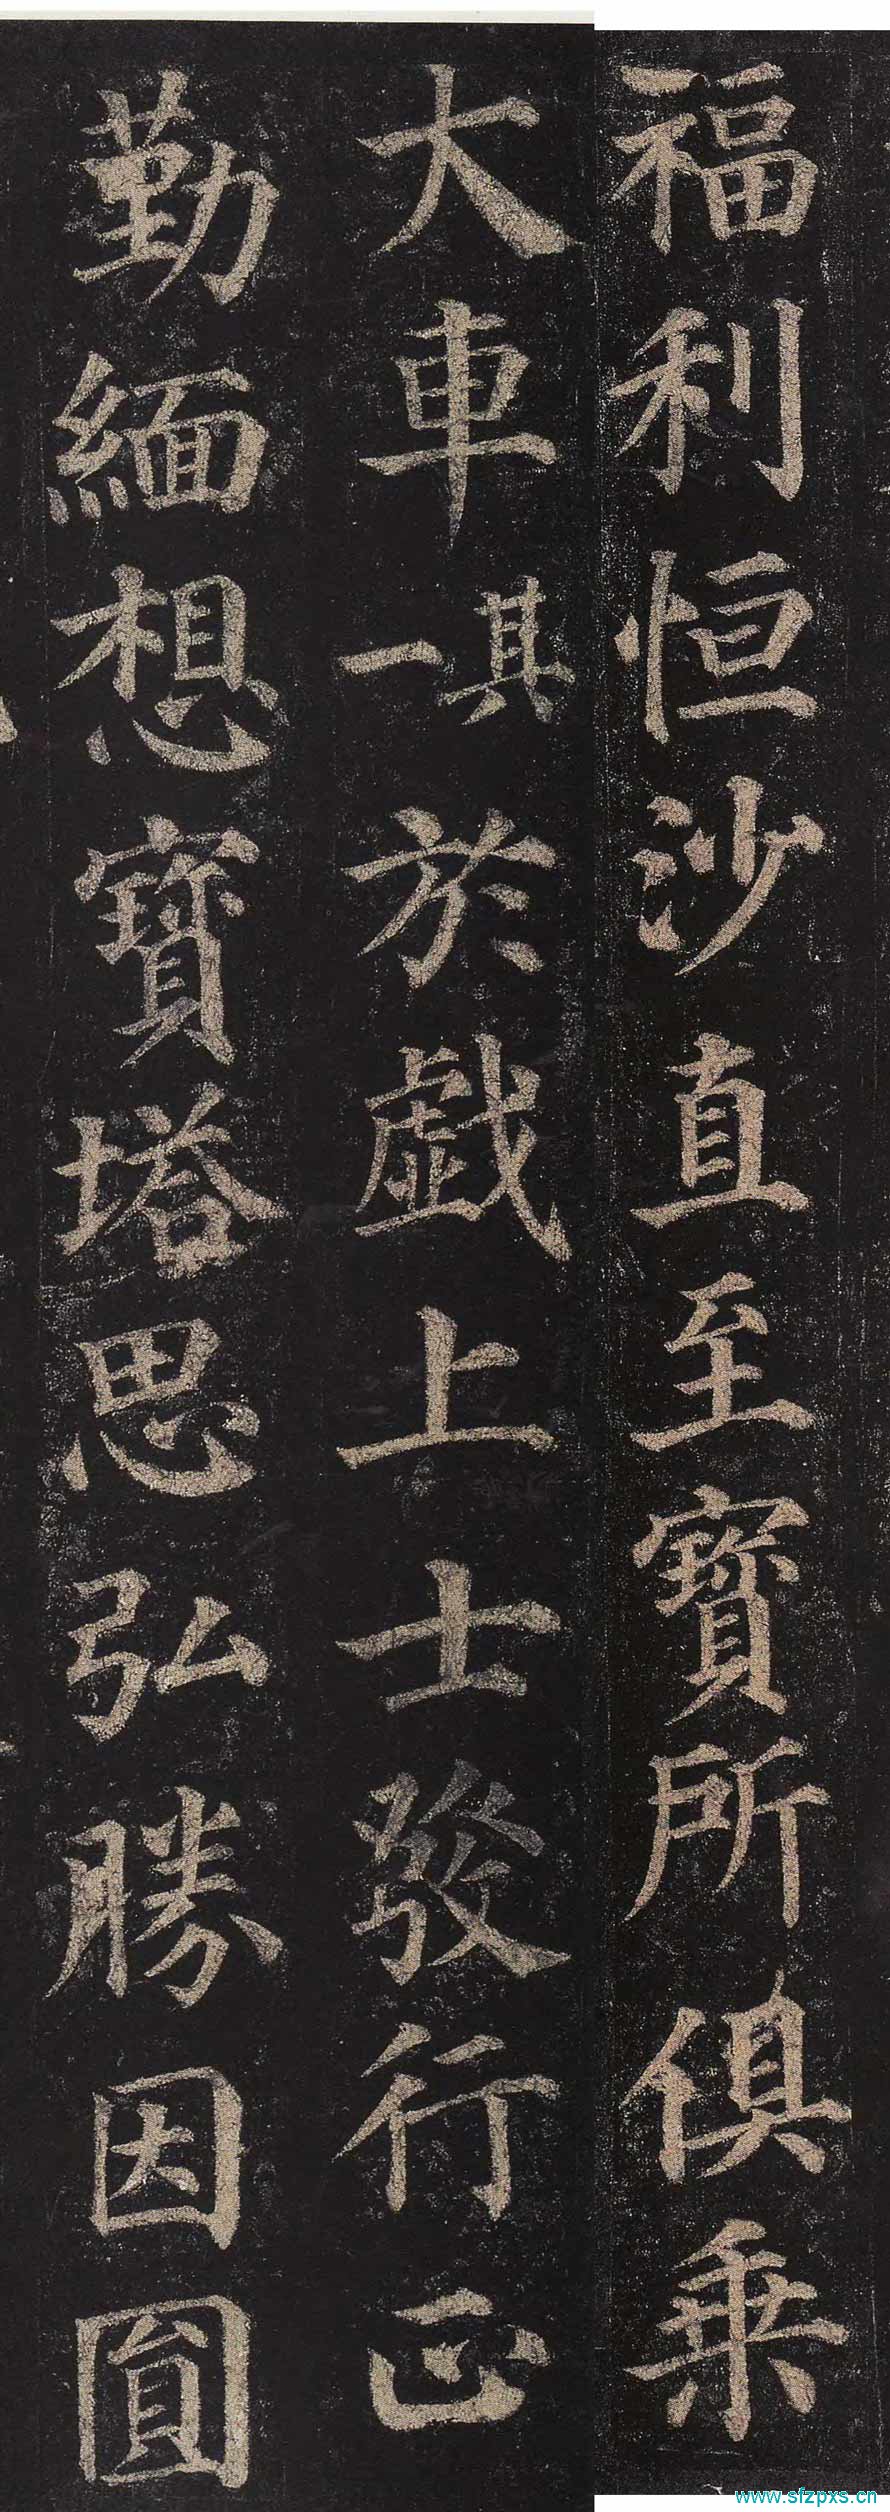 福利恒沙直至寶所俱乗
大車其一於戯上士發行正
勤緬想寶塔思弘勝因圓
www.sfzpxs.cn